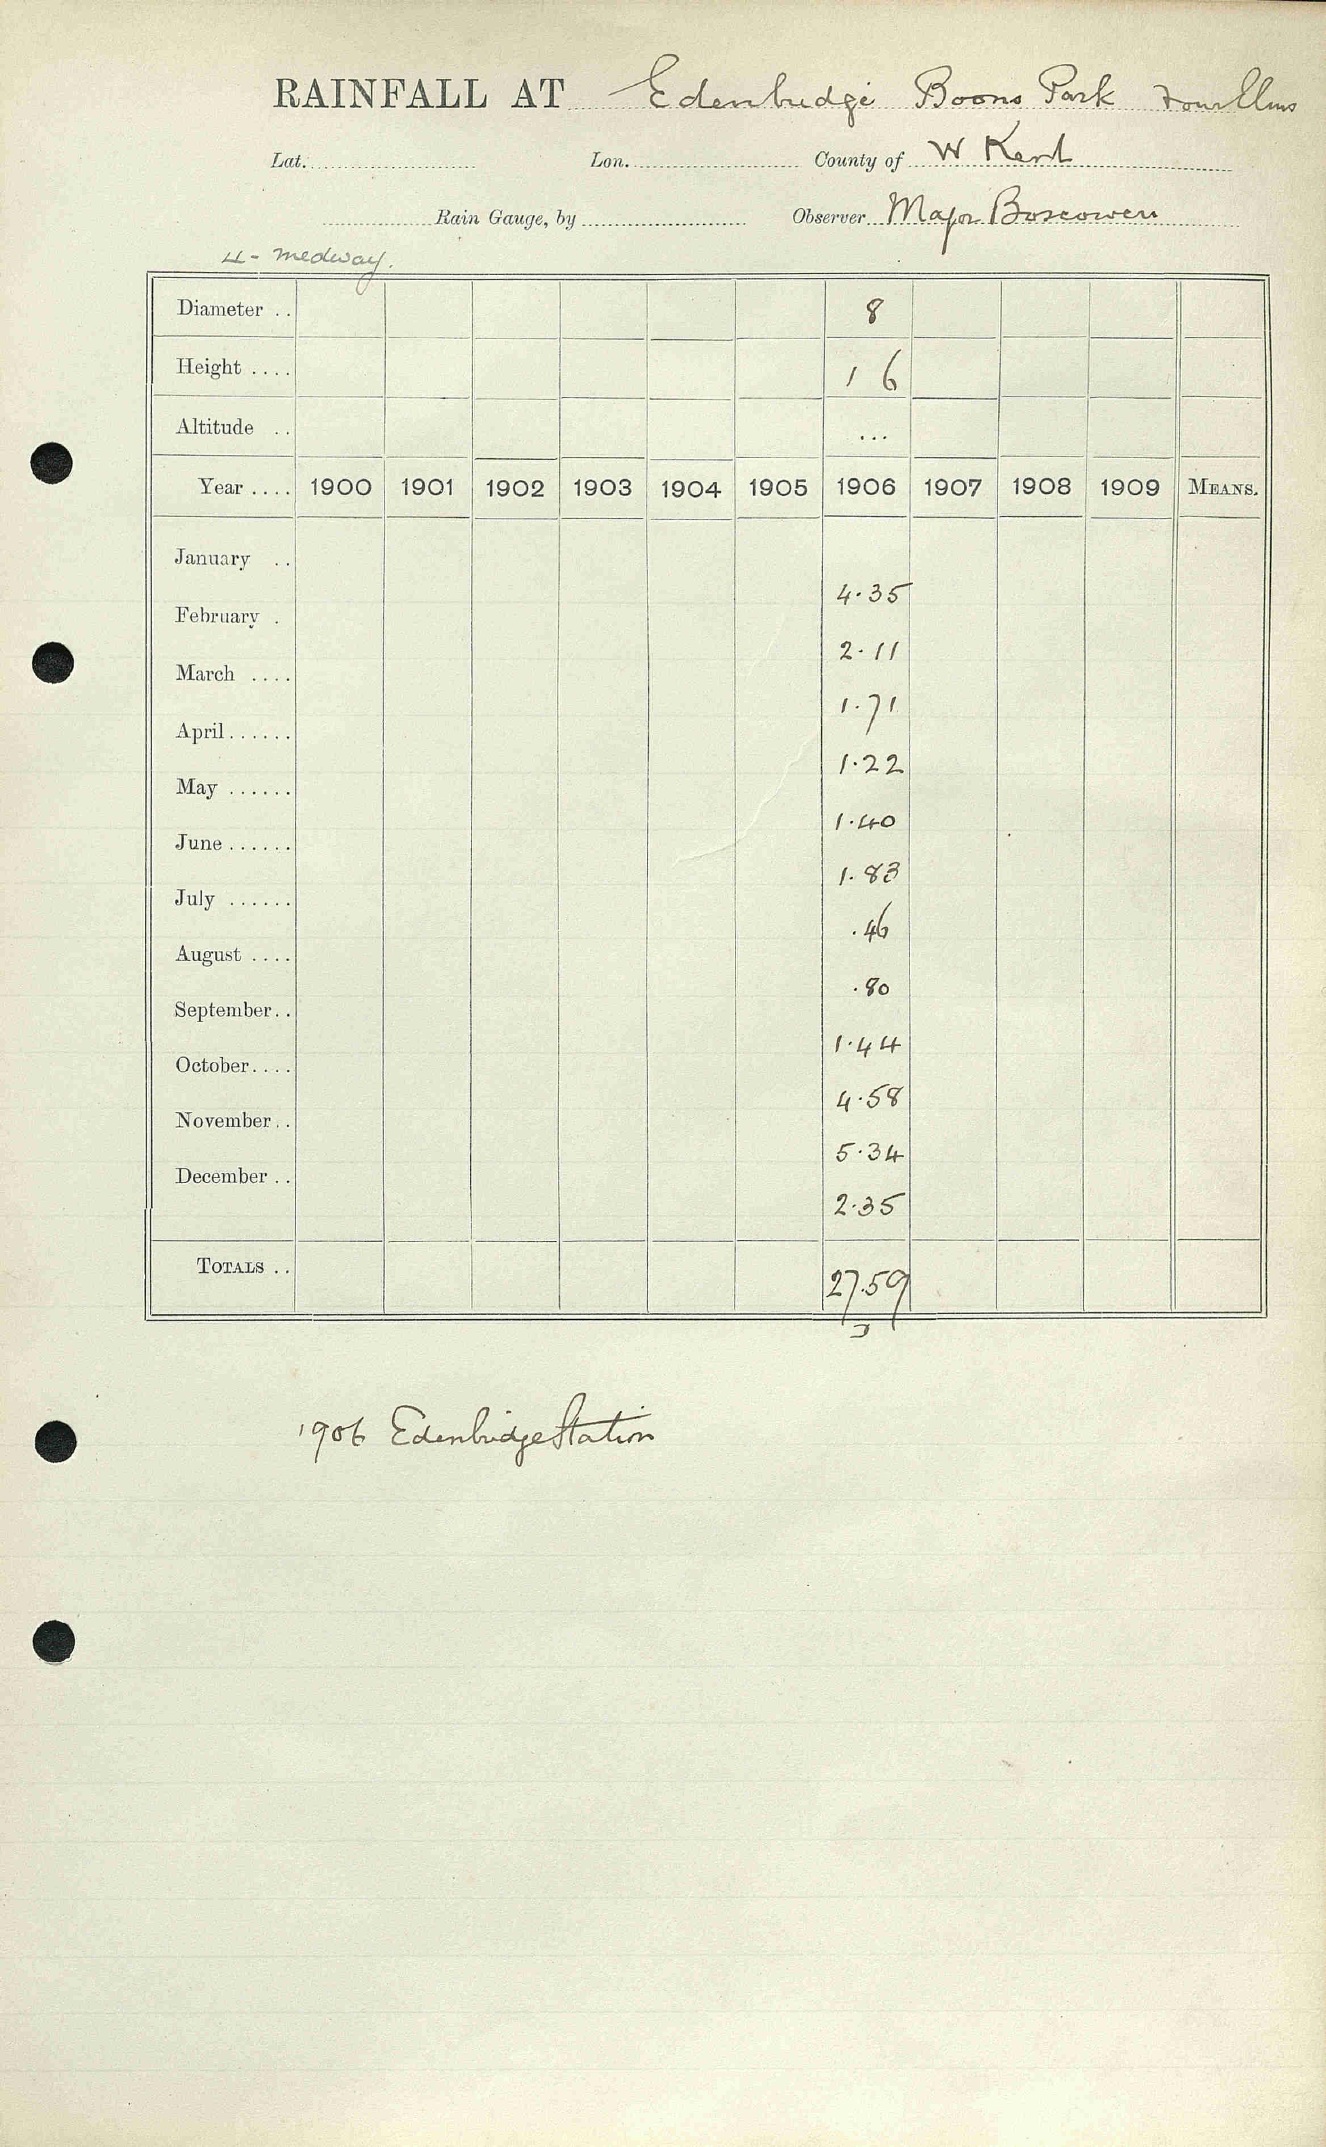 RAINFALL AT Edenbridge Boons Park Four Elms
Lat. Lon. County of W Kent
Rain Gauge, by Observer Major Boscowen
4- Medway.
Diameter .. 8
Height .... 1 6
Altitude .. ...
Year .... 1900 1901 1902 1903 1904 1905 1906 1907 1908 1909 MEANS.
January ..
4.35
February .
2.11
March ....
1.71
April......
1.22
May ......
1.40
June ......
1.83
July ......
.46
August ....
.80
September..
1.44
October....
4.58
November..
5.34
December ..
2.35
TOTALS ..
27.59
1906 Edenbridge Station